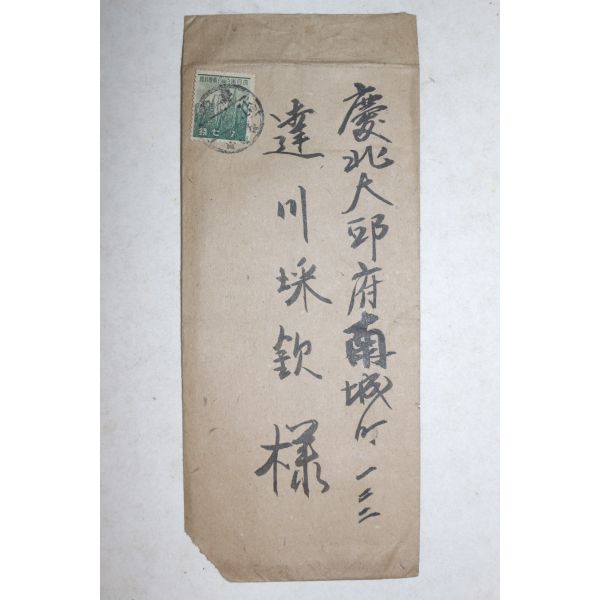 慶北大邱府南城町一二二
達川埰欽様
七銭